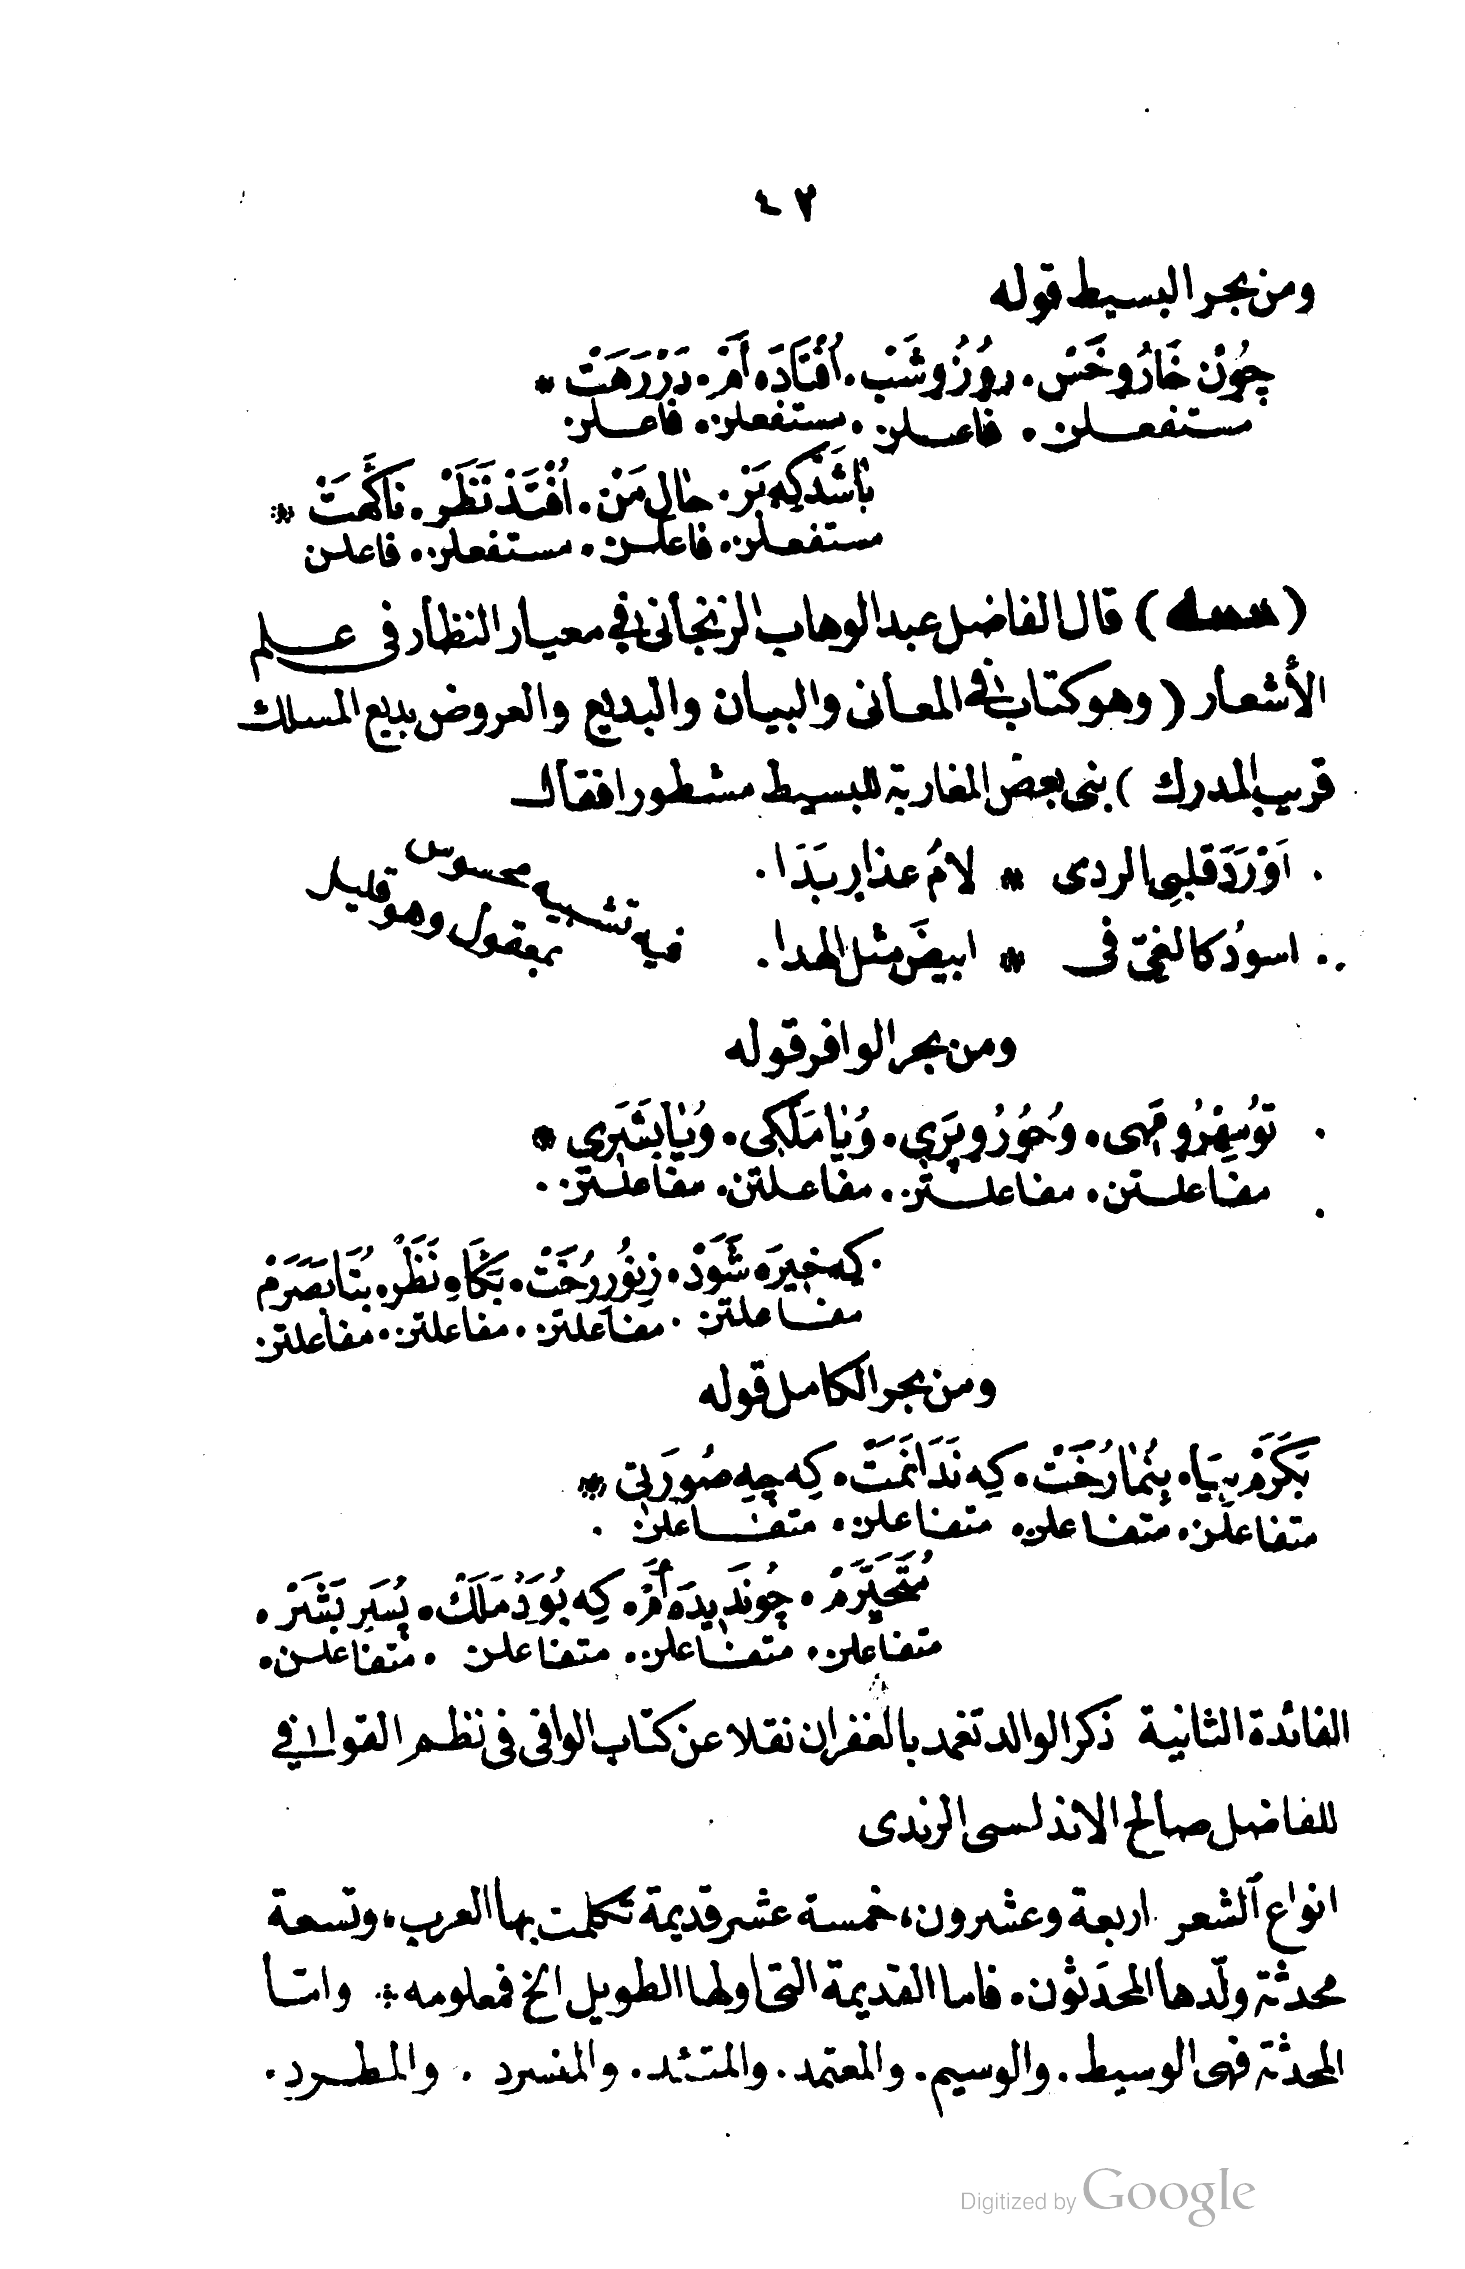 ٤٧
ومن بحر البسيط قوله
چُونْ خَارُ و خَسْ . روُزُ و شَبْ . اُفْتَادَه اَمْ . دَرْ رَهَتْ *
مستفعلن . فاعلن . مستفعلن . فاعلن
بَاشَدْ كِه بَرْ . حَالِ مَنْ . اُفْتَدْ نَظَرْ . نَاگَهَتْ *
مستفعلن . فاعلن . مستفعلن . فاعلن
( ) قال الفاضل عبد الوهاب الزنجاني في معيار النظار في علم
الأشعار ( وهو كتاب في المعاني والبيان والبديع والعروض بديع المسلك
قريب المدرك ) بنى بعض المغاربة للبسيط مشطورا فقال
. اَوْرَدَ قلبِى الردى * لامُ عذارٍ بَدَا .
. اسودُ كالغىّ فى * ابيضَ مثل الهدا .
فيه تشبيه محسوس
بمعقول وهو قليل
ومن بحر الوافر قوله
. توُ مِهْرُ و مَهى . و حُورُ و پَرِي . وَ يَا مَلَكى . وَ يَا بَشَرِي *
. مفاعلتن . مفاعلتن . مفاعلتن . مفاعلتن .
. كِه خِيرَه شَوَدْ . زِ نُورِ رُخَتْ . بَگَاهِ نَظَرْ . بُتَا بَصَرَمْ
مفاعلتن . مفاعلتن . مفاعلتن . مفاعلتن
ومن بحر الكامل قوله
بَكَرَمْ بِيَا . بِنُمَا رُخَتْ . كِه نَدَانَمَتْ . كِه چِه صُورَتِى *
متفاعلن . متفاعلن . متفاعلن . متفاعلن .
مُتَحَيِّرَمْ . چُو نَدِيدَه أَمْ . كِه بُوَدْ مَلَكْ . بُسَيرِ بَشَرْ .
متفاعلن . متفاعلن . متفاعلن . متفاعلن .
الفائدة الثانية ذكر الوالد تغمد بالغفران نقلا عن كتاب الوافى فى نظم القوافي
للفاضل صالح الاندلسى الرندى
انواع الشعر اربعة وعشرون، خمسة عشر قديمة تكلمت بها العرب، وتسعة
محدثة ولّدها المحدَثون . فاما القديمة التى اولها الطويل الخ فمعلومه * وامّا
المحدثة فهى الوسيط . والوسيم . والمعتمد . والمتئد . والمنسرد . والمطرد .
Digitized by Google